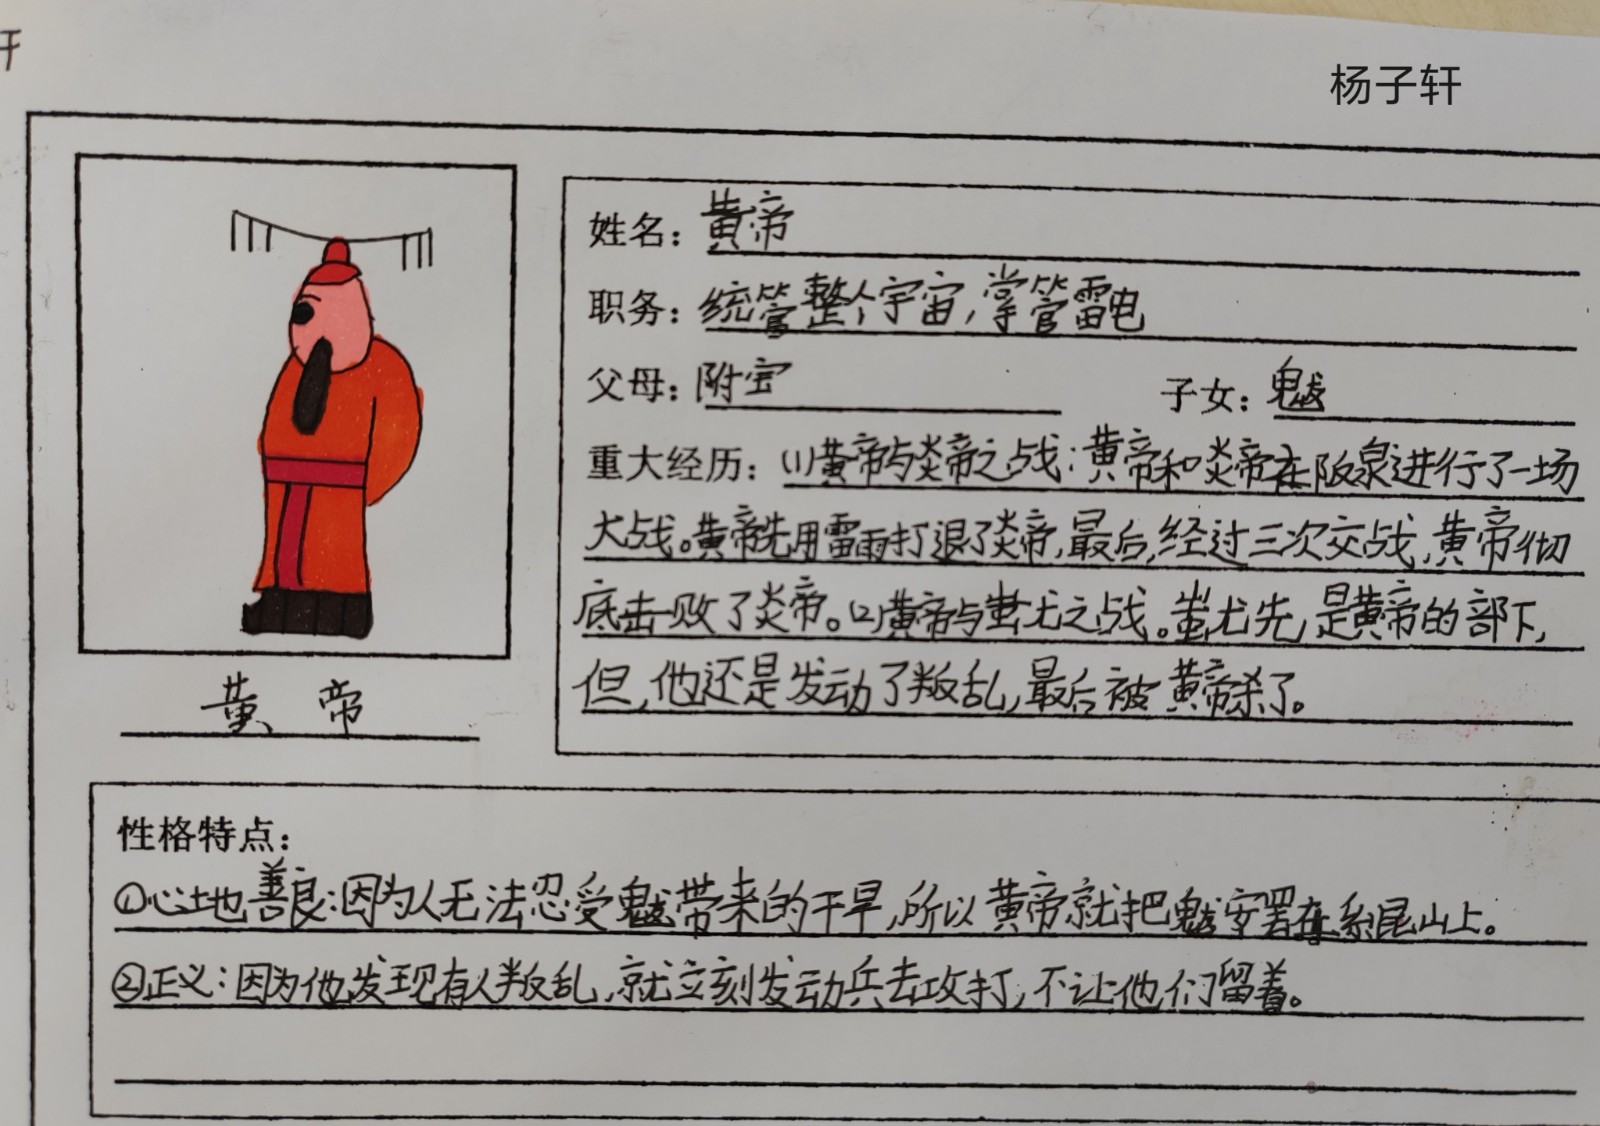 轩
杨子轩
姓名：黄帝
职务：统管整个宇宙，掌管雷电
父母：附宝 子女：魃
重大经历：(1)黄帝与炎帝之战：黄帝和炎帝在阪泉进行了一场
大战。黄帝先用雷雨打退了炎帝，最后，经过三次交战，黄帝彻
底击败了炎帝。(2)黄帝与蚩尤之战。蚩尤先，是黄帝的部下，
但，他还是发动了叛乱，最后被黄帝杀了。
黄帝
性格特点：
①心地善良：因为人无法忍受魃带来的干旱，所以黄帝就把魃安置在系昆山上。
②正义：因为他发现有人叛乱，就立刻发动兵去攻打，不让他们留着。